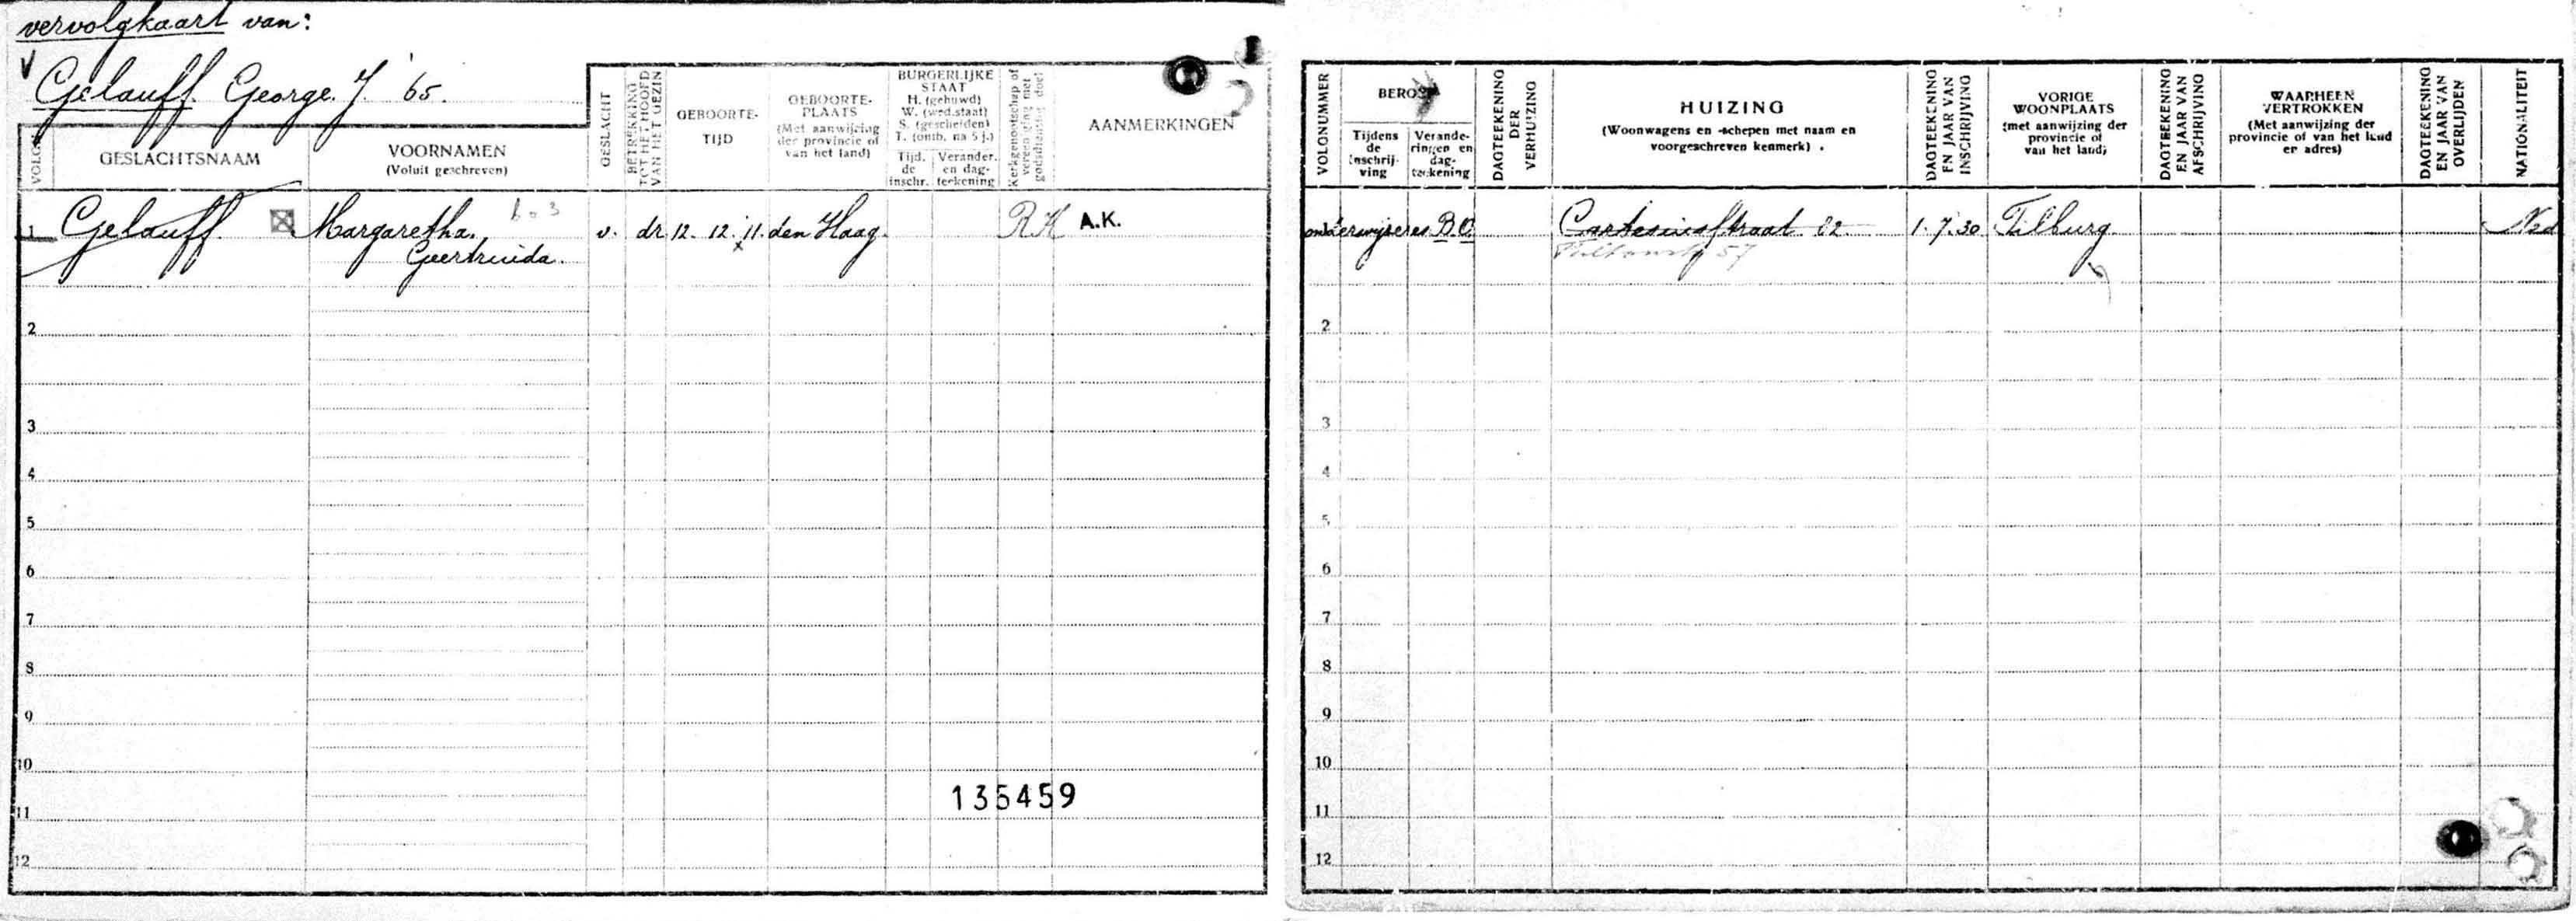 vervolgkaart van:
V
Gelauff. George. J. '65.
VOLG
GESLACHTSNAAM
VOORNAMEN
(Voluit geschreven)
GESLACHT
BETREKKING
TOT HET HOOFD
VAN HET GEZIN
GEBOORTE-
TIJD
GEBOORTE-
PLAATS
(Met aanwijzing
der provincie of
van het land)
BURGERLIJKE
STAAT
H. (gehuwd)
W. (wed.staat)
S. (gescheiden)
T. (ontb. na 5 j.)
Tijd.
de
inschr.
Verander.
en dag-
teekening
Kerkgenootschap of
vereeniging met
godsdienstig doel
AANMERKINGEN
1 Gelauff. Margaretha. 603 v. dr. 12. 12. '11. den Haag. RK A.K.
x
Geertruida.
2
3
4
5
6
7
8
9
10
135459
11
12
VOLGNUMMER
BEROEP
Tijdens
de
inschrij-
ving
Verande-
ringen en
dag-
teekening
DAGTEEKENING
DER
VERHUIZING
HUIZING
(Woonwagens en -schepen met naam en
voorgeschreven kenmerk) .
DAGTEEKENING
EN JAAR VAN
INSCHRIJVING
VORIGE
WOONPLAATS
(met aanwijzing der
provincie of
van het land)
DAGTEEKENING
EN JAAR VAN
AFSCHRIJVING
WAARHEEN
VERTROKKEN
(Met aanwijzing der
provincie of van het land
en adres)
DAGTEEKENING
EN JAAR VAN
OVERLIJDEN
NATIONALITEIT
onderwijzeres B.O. Cartesiusstraat 82 1.7.30 Tilburg. Ned
57
2
3
4
5
6
7
8
9
10
11
12